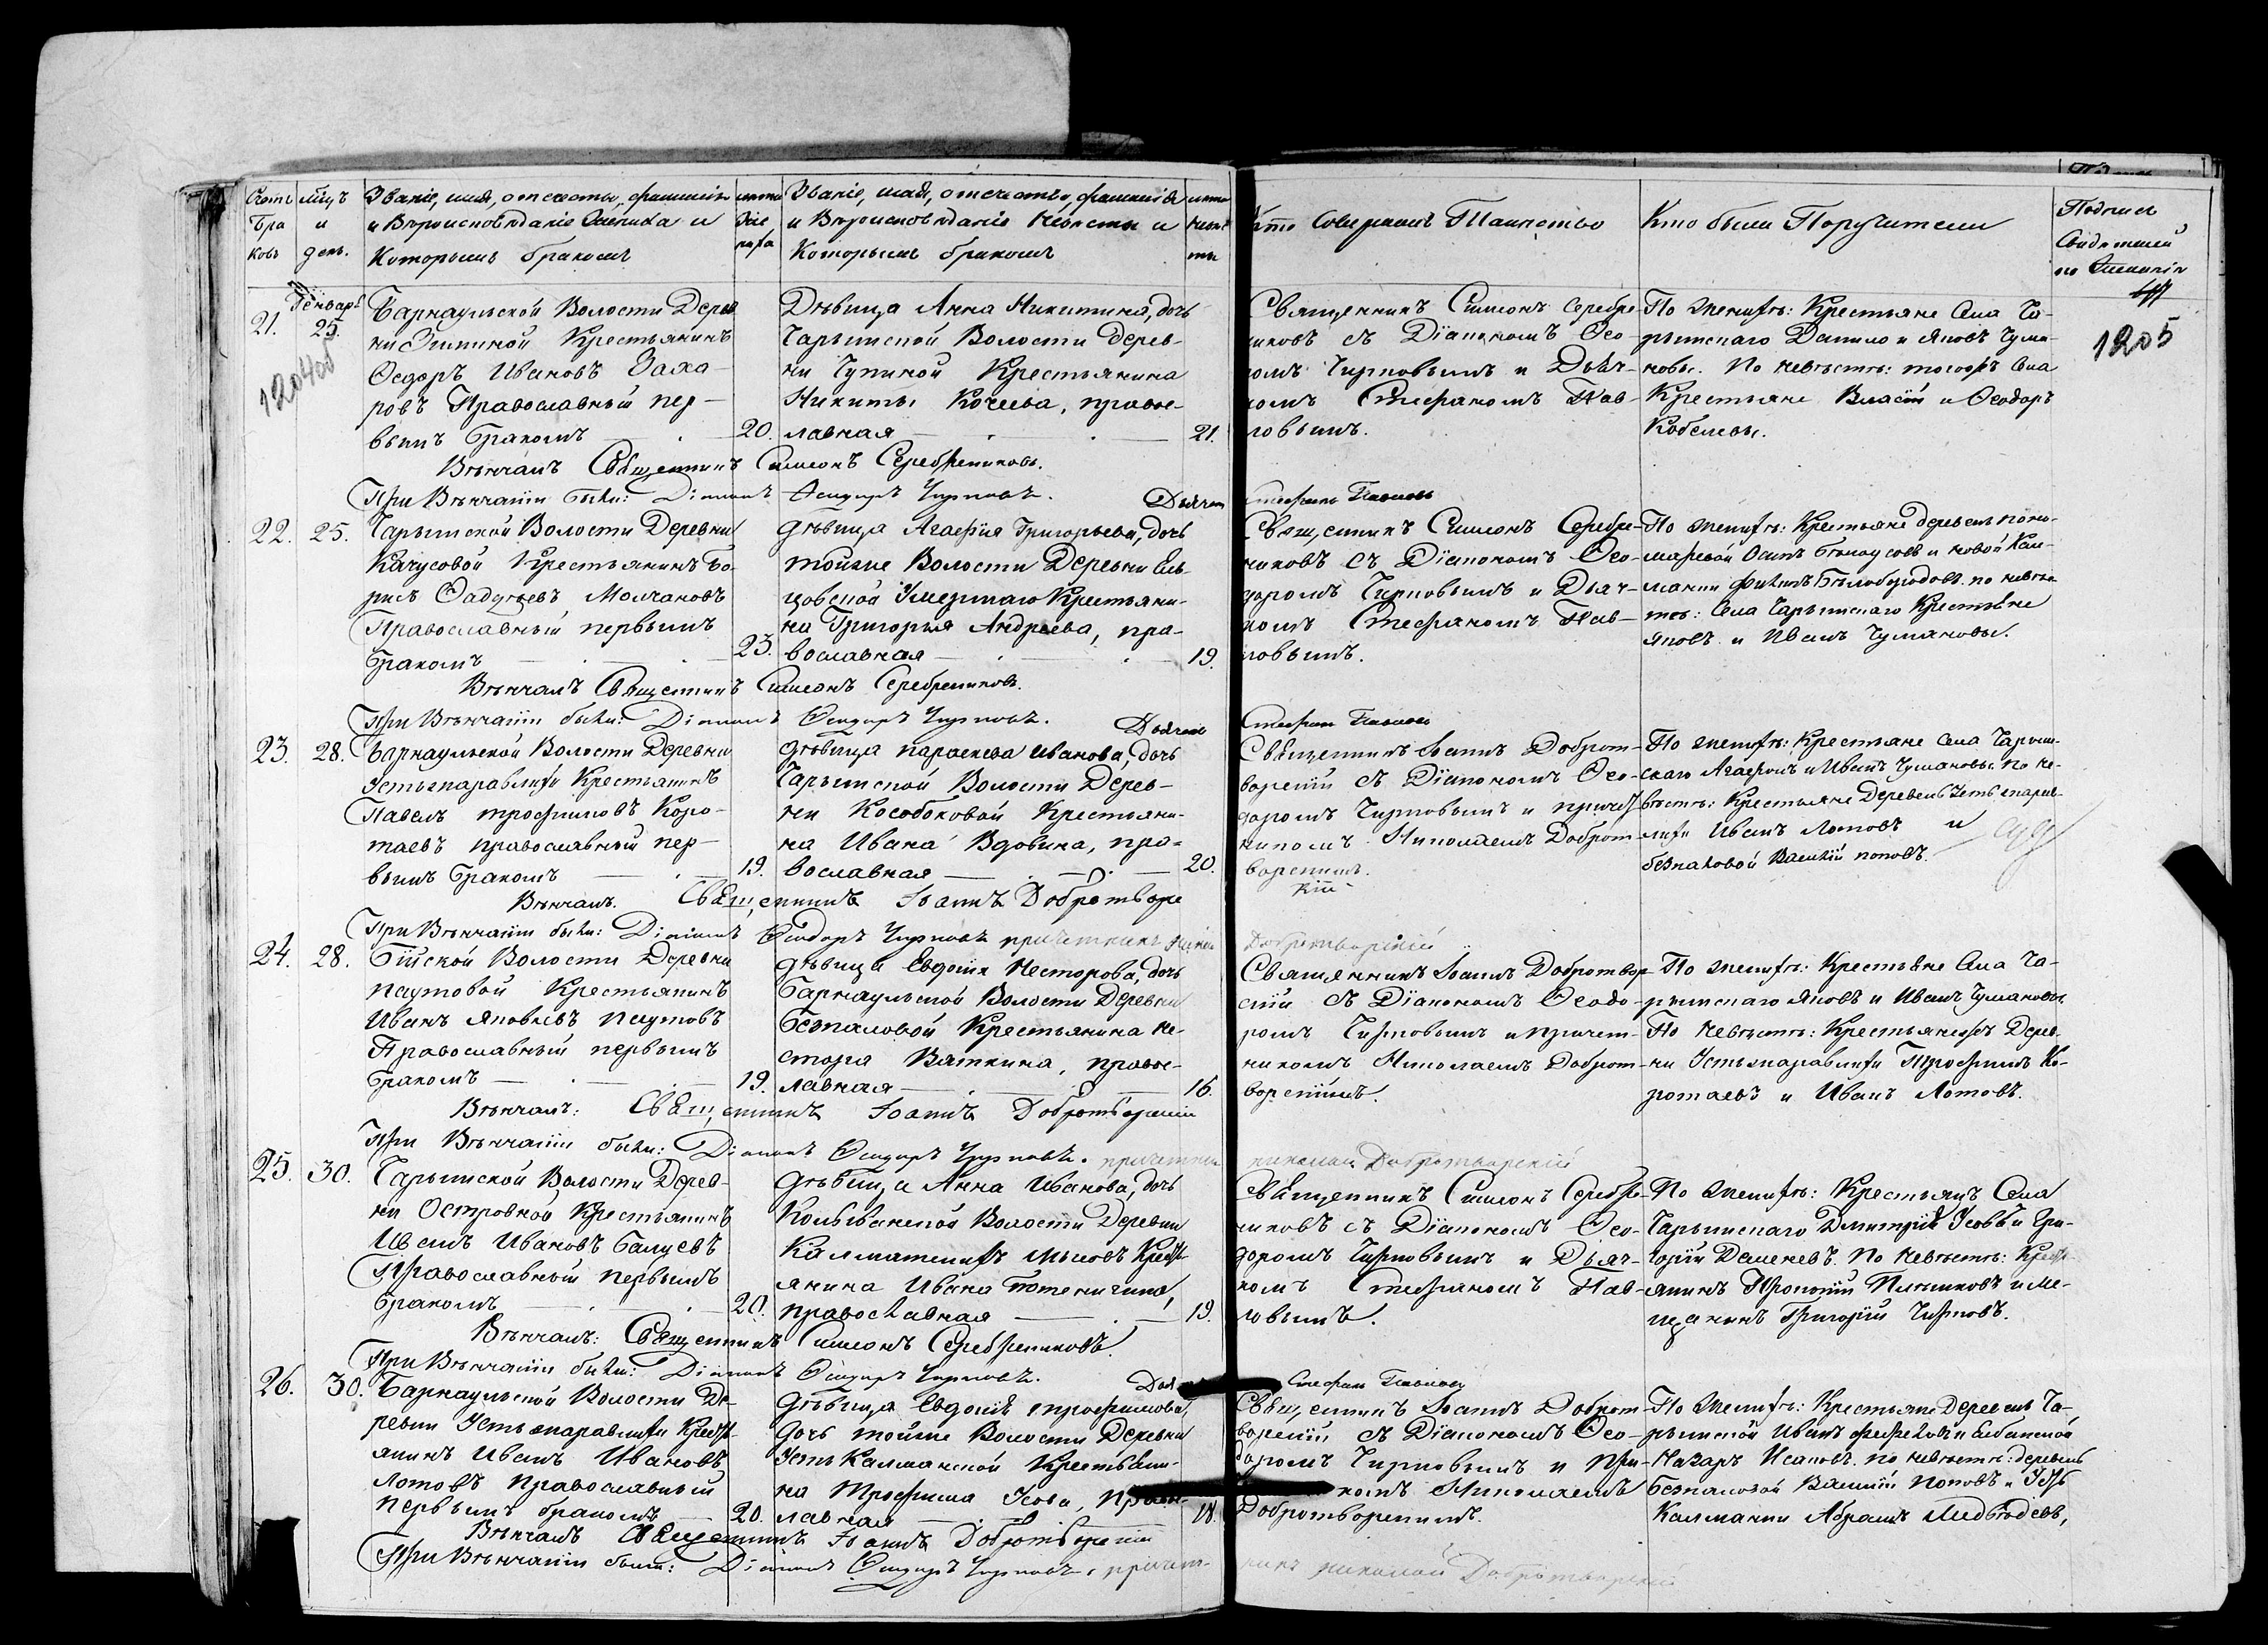 Счетъ Браковъ
Мѣсяцъ и день.
Званіе, имя, отечество, фамилія
и Вѣроисповѣданіе Жениха и
Которымъ бракомъ
Званіе, имя, отечество, фамилія
и Вѣроисповѣданіе Невѣсты и
Которымъ бракомъ
Кто совершалъ Таинство
Кто были Поручители
Подпись
Свидетелей
по Желанію
1204об
1205
21.
Генварь
25.
Барнаульской Волости Дерев
ни Крестьянинъ
Ѳедоръ Ивановъ Заха-
ровъ Православный пер-
вымъ бракомъ
20.
Дѣвица Анна Никитина, дочь
Чарышской Волости дерев-
ни Чупиной Крестьянина
Никиты Кочева, правос-
лавная
21.
Священникъ Симеонъ Серебре
никовъ съ Діакономъ Ѳео-
ромъ Чирковымъ и Дьяч-
комъ Стефаномъ Пав-
ловымъ.
По женихѣ: Крестьяне Села Ча-
рышскаго Данило и Яковъ Чума-
ковы. По невѣстѣ: тогожъ Села
Крестьяне Власій и Ѳеодоръ
Кобелевы.
Вѣнчалъ Священникъ Симеонъ Серебрениковъ.
При Вѣнчаніи были: Діаконъ Ѳеодоръ Чирковъ. Дьячекъ
Стефанъ Павловъ
22.
25.
Чарышской Волости Деревни
Качусовой Крестьянинъ Бо-
рисъ Ѳадѣевъ Молчановъ
Православный первымъ
бракомъ
23.
дѣвица Агафія Григорьева, дочь
тойже Волости Деревни Ель-
цовской Умершаго Крестьяни-
на Григорья Андреева, пра-
вославная
19.
Священникъ Симеонъ Серебре-
никовъ съ Діакономъ Ѳео-
доромъ Чирковымъ и Дьяч-
комъ Стефаномъ Пав-
ловымъ.
По женихѣ: Крестьяне деревень Поно-
маревой Осипъ Бѣлоусовъ и новой Кал-
манки Филипъ Бѣлобородовъ. по невѣс
тѣ: Села Чарышскаго Крестьяне
Яковъ и Иванъ Чумаковы.
Вѣнчалъ Священникъ Симеонъ Серебрениковъ.
При Вѣнчаніи были: Діаконъ Ѳеодоръ Чирковъ. Дьячекъ
Стефанъ Павловъ
23.
28.
Барнаульской Волости Деревни
Устьжуравлихи Крестьянинъ
Павелъ трофимовъ Коро-
таевъ православный пер-
вымъ бракомъ
19.
дѣвица параскева Иванова, дочь
Чарышской Волости Дерев-
ни Кособоковой Крестьяни-
на Ивана Вдовина, пра-
вославная
20.
Священникъ Іоаннъ Доброт-
ворскій съ Діакономъ Ѳео-
доромъ Чирковымъ и причет-
никомъ Николаемъ Доброт-
ворскимъ.
По женихѣ: Крестьяне села Чарыш-
скаго Агафонъ и Иванъ Чумаковы. По не-
вѣстѣ: Крестьяне Деревень Устьжурав-
лихи Иванъ Лотовъ и
безпаловой Василій поповъ.
Вѣнчалъ. Священникъ Іоаннъ Добротворс
кій
При Вѣнчаніи были: Діаконъ Ѳеодоръ Чирковъ причетникъ Никол
Добротворскій
24.
28.
Бійской Волости Деревни
паутовой Крестьянинъ
Иванъ Яковлевъ паутовъ
Православный первымъ
бракомъ
19.
дѣвица Евдокія Несторова, дочь
Барнаульской Волости Деревни
Безпаловой Крестьянина Не-
стора Вяткина, правос-
лавная
16.
Священникъ Іоаннъ Добротвор-
скій съ Діакономъ Ѳеодо-
ромъ Чирковымъ и причет-
никомъ Николаемъ Доброт-
ворскимъ.
По женихѣ: Крестьяне Села Ча-
рышскаго Яковъ и Иванъ Чумаковы.
По Невѣстѣ: Крестьянежъ Дерев-
ни Устьжуравлихи Трофимъ Ко-
ротаевъ и Иванъ Лотовъ.
Вѣнчалъ: Священникъ Іоаннъ Добротворскій
При Вѣнчаніи были: Діаконъ Ѳеодоръ Чирковъ. причетник
николай Добротворскій
25.
30.
Чарышской Волости Дерев-
ни Островной Крестьянинъ
Иванъ Ивановъ Балуевъ
Православный первымъ
бракомъ
20.
дѣвица Анна Иванова, дочь
Колыванской Волости Деревни
Калматскихъ Мысовъ Крест-
янина Ивана
православная
19.
Священникъ Симеонъ Серебре-
никовъ съ Діакономъ Ѳео-
доромъ Чирковымъ и Дьяч-
комъ Стефаномъ Пав-
ловымъ.
По женихѣ: Крестьянъ Села
Чарышскаго Дмитрій Усовъ и Гри-
горій Деменевъ. По невѣстѣ: Крест-
янинъ Прокопій Плѣшковъ и ме-
щанинъ Григорій Чирковъ.
Вѣнчалъ: Священникъ Симеонъ Серебрениковъ.
При Вѣнчаніи были: Діаконъ Ѳеодоръ Чирковъ. Дья
Стефанъ Павловъ
26.
30.
Барнаульской Волости Де-
ревни Устьжуравлихи Крест-
янинъ Иванъ Ивановъ
Лотовъ Православный
первымъ бракомъ
20.
дѣвица Евдокія трофимова,
дочь тойже Волости Деревни
Усть Калманской Крестьяни-
на Трофима Усова, правос-
лавная
18.
Священникъ Іоаннъ Доброт-
ворскій съ Діакономъ Ѳео-
доромъ Чирковымъ и При-
комъ Николаемъ
Добротворскимъ.
По женихѣ: Крестьяне Деревень Ча-
рышской Иванъ Фефеловъ и Елбанской
Назаръ Исаковъ. по невѣстѣ: деревень
Безпаловой Василій Поповъ и Усть
Калманки Абрамъ Медвѣдевъ,
Вѣнчалъ Священникъ Іоаннъ Добротворскій
При Вѣнчаніи были: Діаконъ Ѳеодоръ Чирковъ, причет-
никъ николай Добротворскій